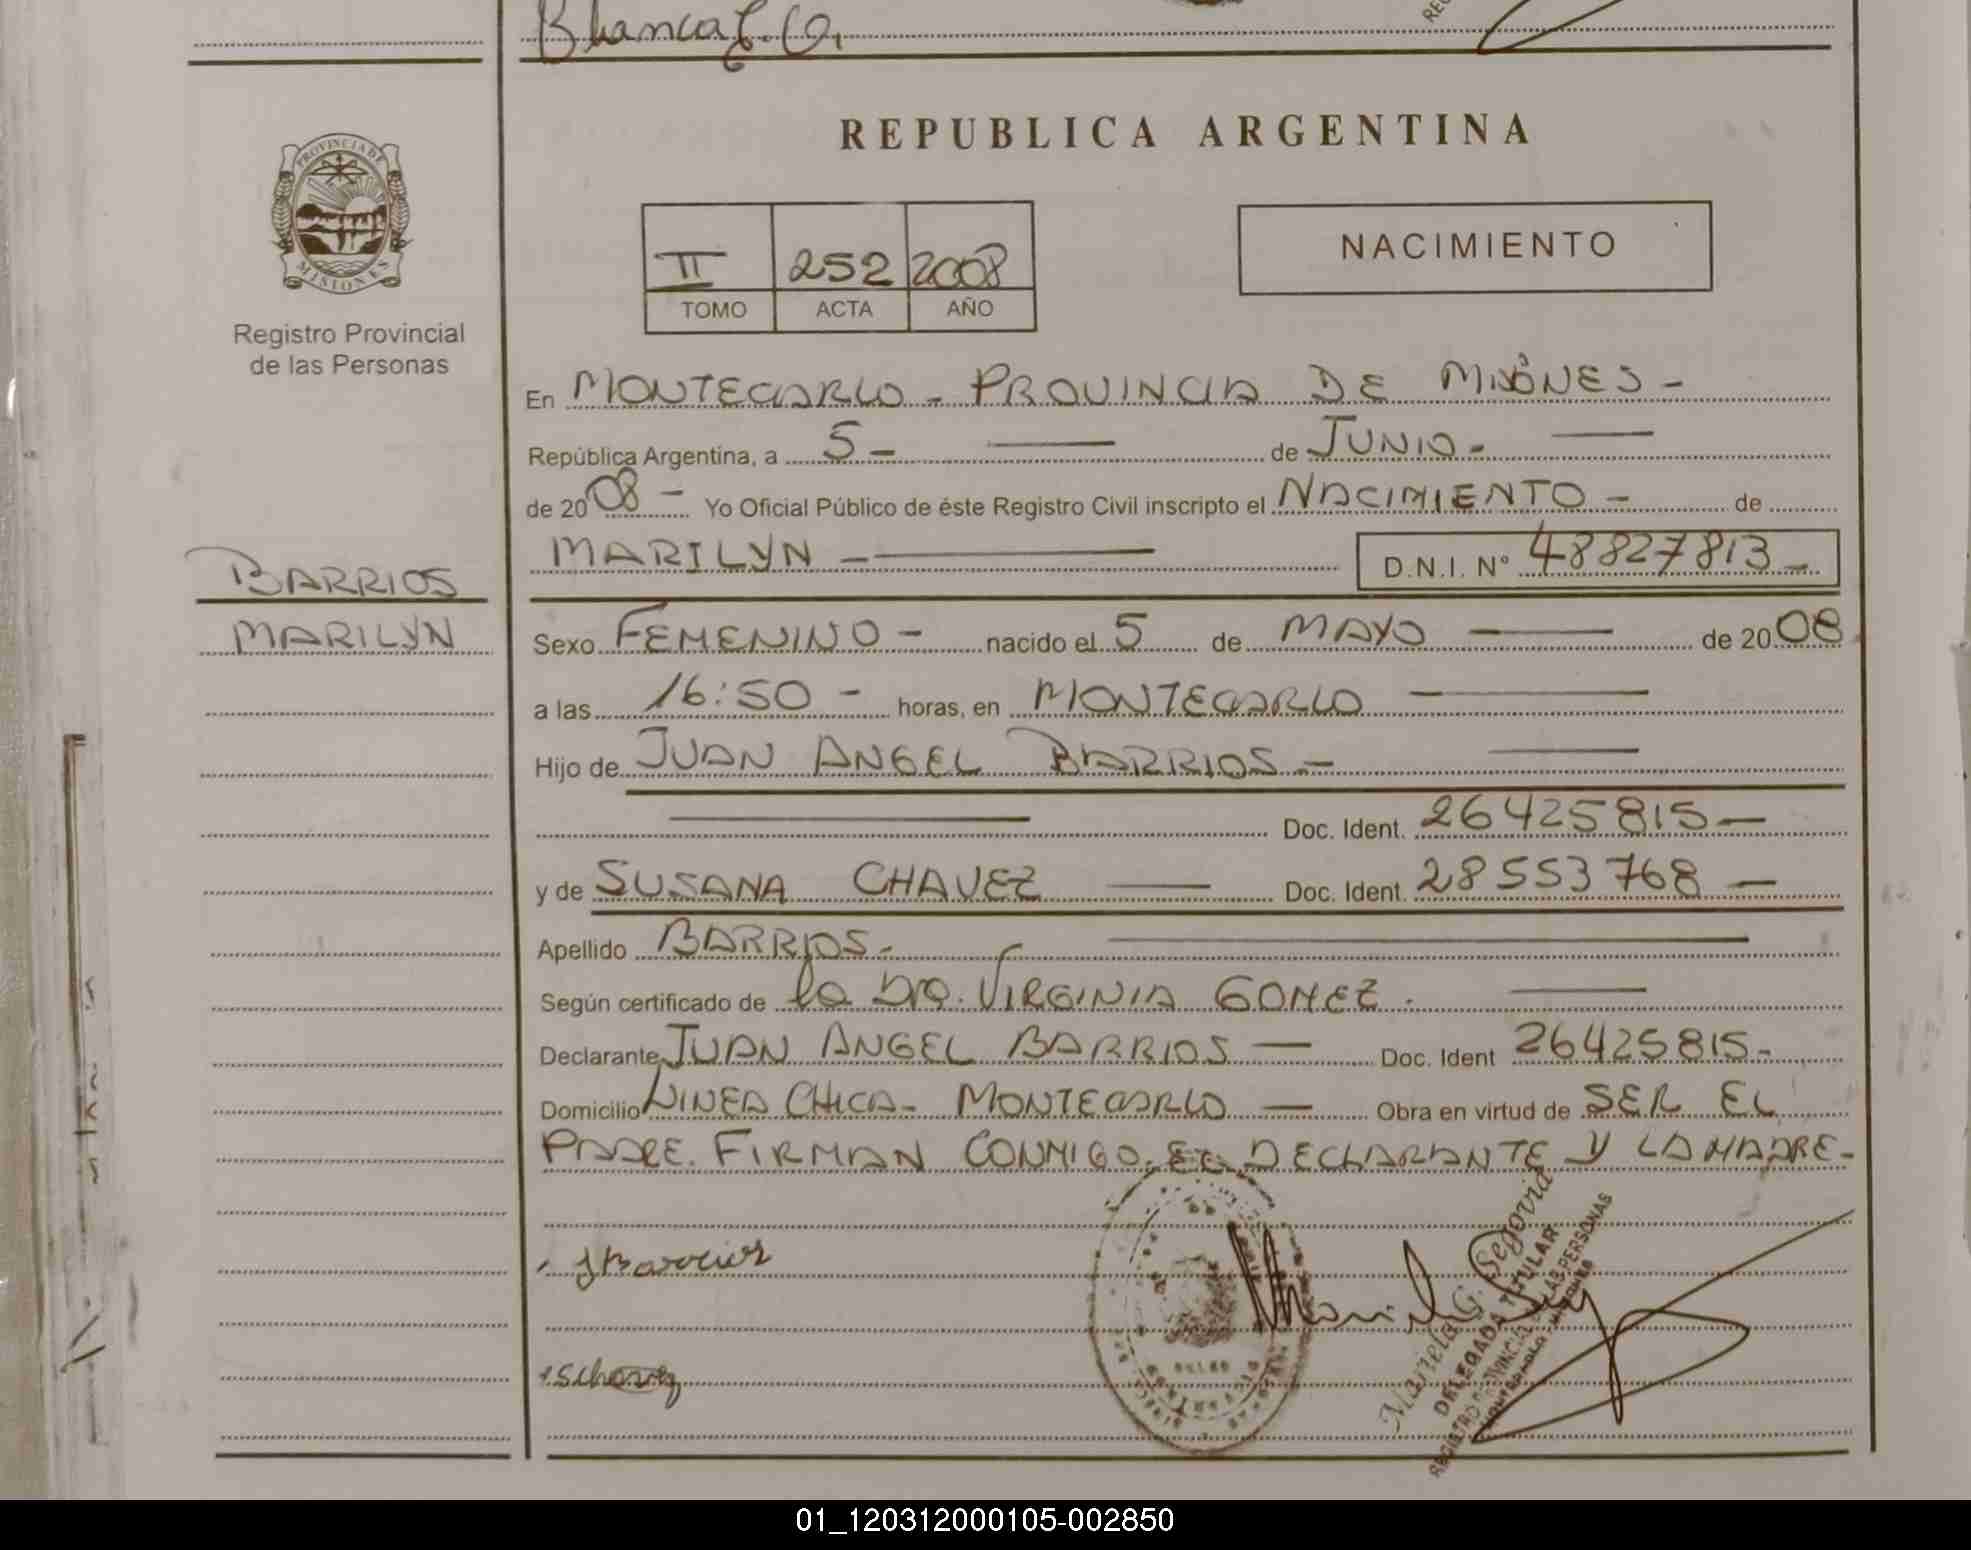 Blanca E. O.
REPUBLICA ARGENTINA
PROVINCIA DE
MISIONES
Registro Provincial
de las Personas
II 252 2008
TOMO ACTA AÑO
NACIMIENTO
En MONTECARLO - PROVINCIA DE MISIONES -
República Argentina, a 5 - de JUNIO -
de 2008 - Yo Oficial Público de éste Registro Civil inscripto el NACIMIENTO - de
MARILYN - D.N.I. N° 48827813 -
BARRIOS
MARILYN
Sexo FEMENINO - nacido el 5 de MAYO - de 2008
a las 16:50 - horas, en MONTECARLO -
Hijo de JUAN ANGEL BARRIOS -
Doc. Ident. 26425815 -
y de SUSANA CHAVEZ - Doc. Ident. 28553768 -
Apellido BARRIOS -
Según certificado de la Dra. VIRGINIA GOMEZ.
Declarante JUAN ANGEL BARRIOS - Doc. Ident 26425815 -
Domicilio LINEA CHICA - MONTECARLO - Obra en virtud de SER EL
PADRE. FIRMAN CONMIGO, EL DECLARANTE Y LA MADRE -
JBarrios
SChavez
Mariela G. Segovia
DELEGADA TITULAR
REGISTRO PROVINCIAL DE LAS PERSONAS
MONTECARLO - MISIONES
01_120312000105-002850